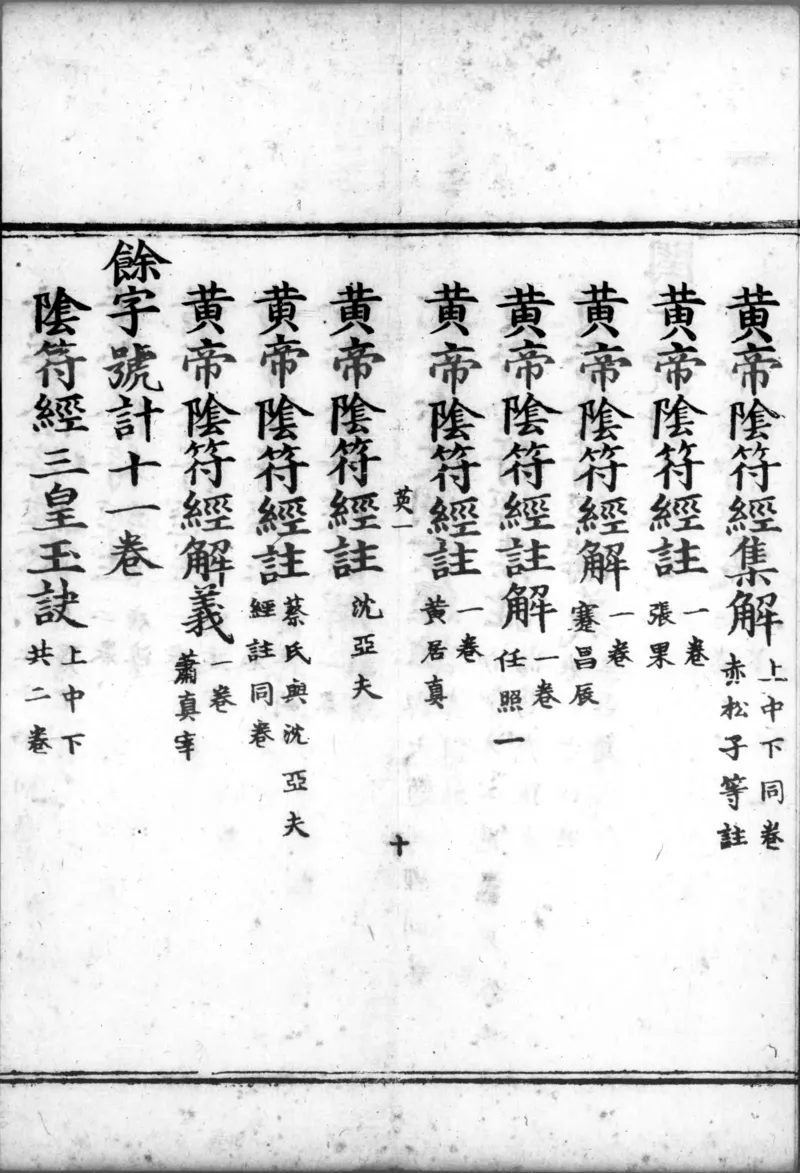 黄帝陰符經集解上中下同卷赤松子等註
黄帝陰符經註一卷張果
黄帝陰符經解一卷蹇昌辰
黄帝陰符經註解一卷任照一
黄帝陰符經註一卷黄居真
英一 十
黄帝陰符經註沈亞夫
黄帝陰符經註蔡氏與沈亞夫經註同卷
黄帝陰符經解義一卷蕭真宰
餘字號計十一卷
陰符經三皇玉訣上中下共二卷